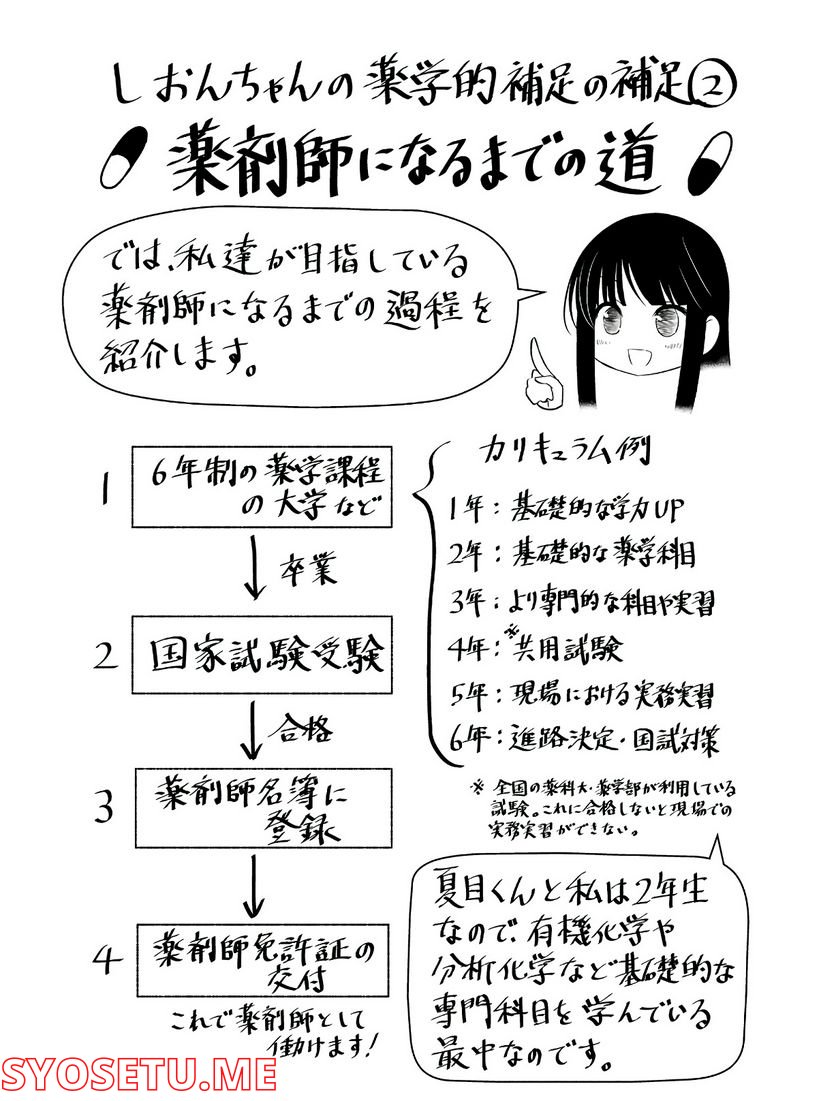 しおんちゃんの薬学的補足の補足②
薬剤師になるまでの道
では、私達が目指している
薬剤師になるまでの過程を
紹介します。
1
6年制の薬学課程
の大学など
卒業
2
国家試験受験
合格
3
薬剤師名簿に
登録
4
薬剤師免許証の
交付
これで薬剤師として
働けます!
カリキュラム例
1年:基礎的な学力UP
2年:基礎的な薬学科目
3年:より専門的な科目や実習
4年:※共用試験
5年:現場における実務実習
6年:進路決定・国試対策
※全国の薬科大・薬学部が利用している
試験。これに合格しないと現場での
実務実習ができない。
夏目くんと私は2年生
なので、有機化学や
分析化学など基礎的な
専門科目を学んでいる
最中なのです。
SYOSETU.ME